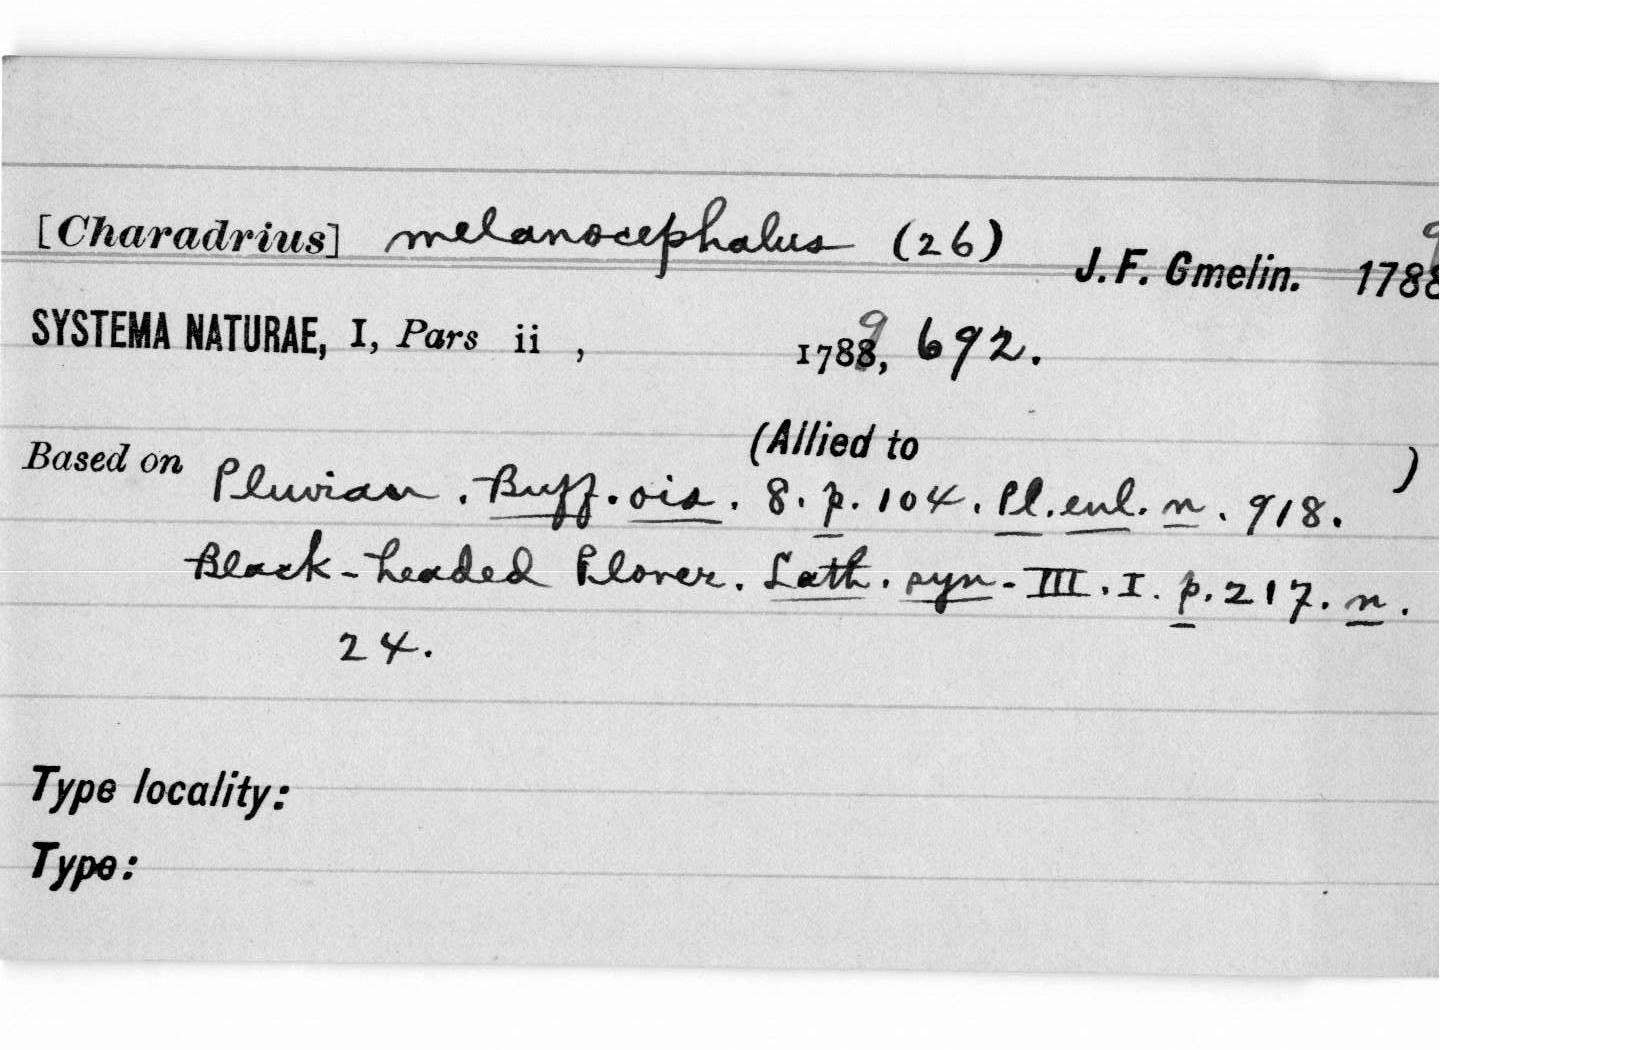 [Charadrius] melanocephalus (26) J. F. Gmelin. 1788 9
SYSTEMA NATURAE, I, Pars ii , 1788 9, 692.
(Allied to )
Based on Pluvian. Buff. ois. 8. p. 104. Pl. enl. n. 918.
Black-headed Plover. Lath. syn- III. I. p. 217. n.
24.
Type locality:
Type: